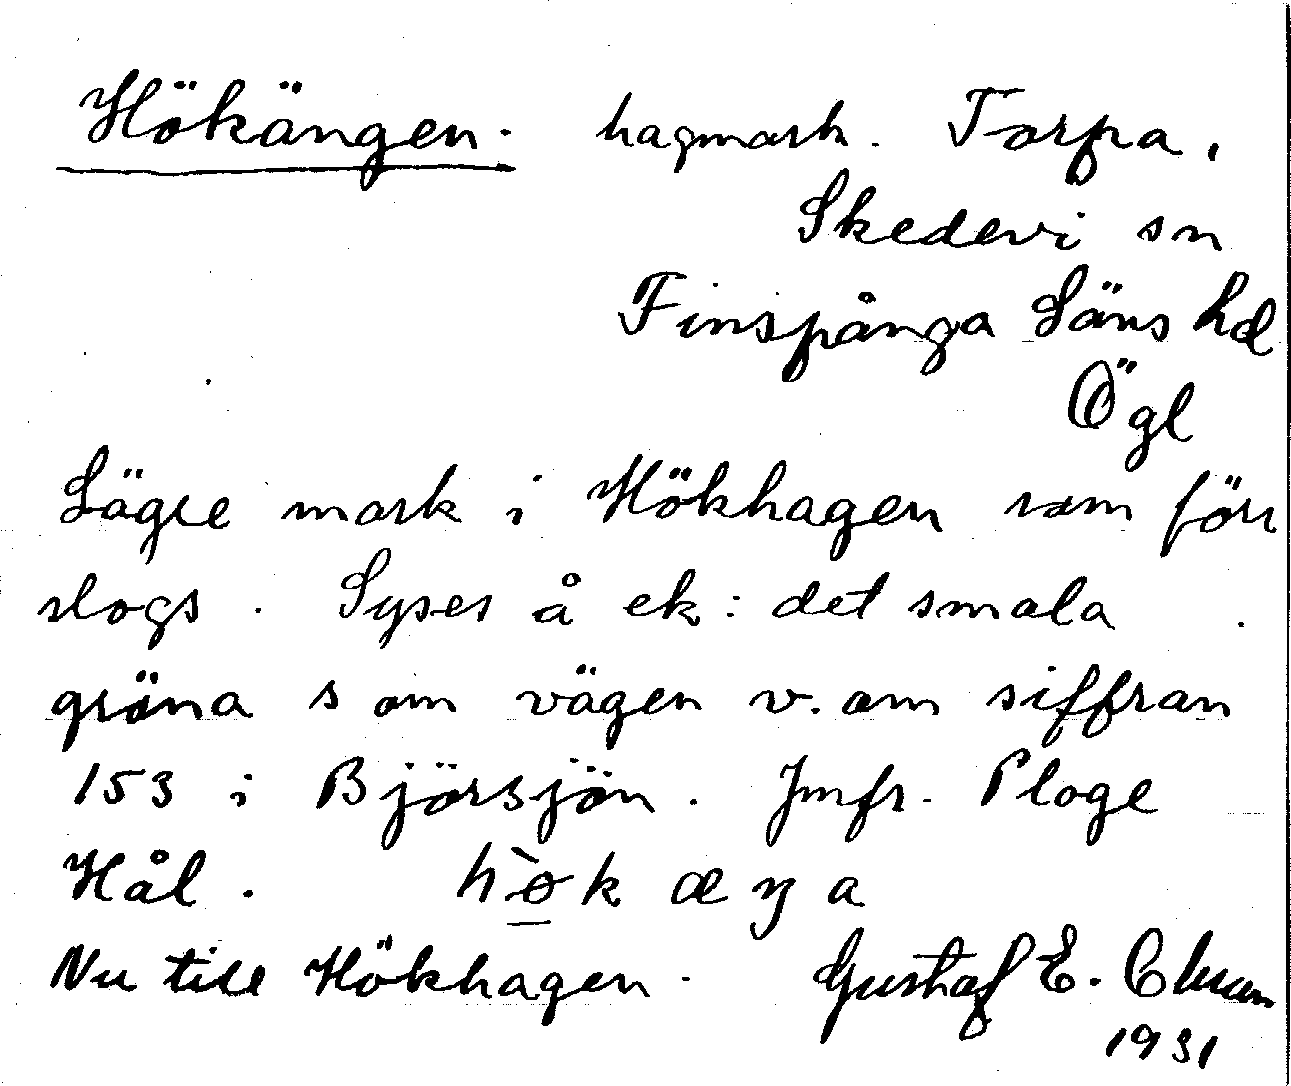 Hökängen. hagmark. Torpa,
Skedevi sn
Finspånga Läns hd
Ögl
Lägre mark i Hökhagen som förr
slogs. Synes å ek: det smala
gröna s om vägen v. om siffran
153 i Björsjön. Jmfr. Ploge
Hål. hø̀k æŋa
Nu till Hökhagen. Gustaf E.
1931